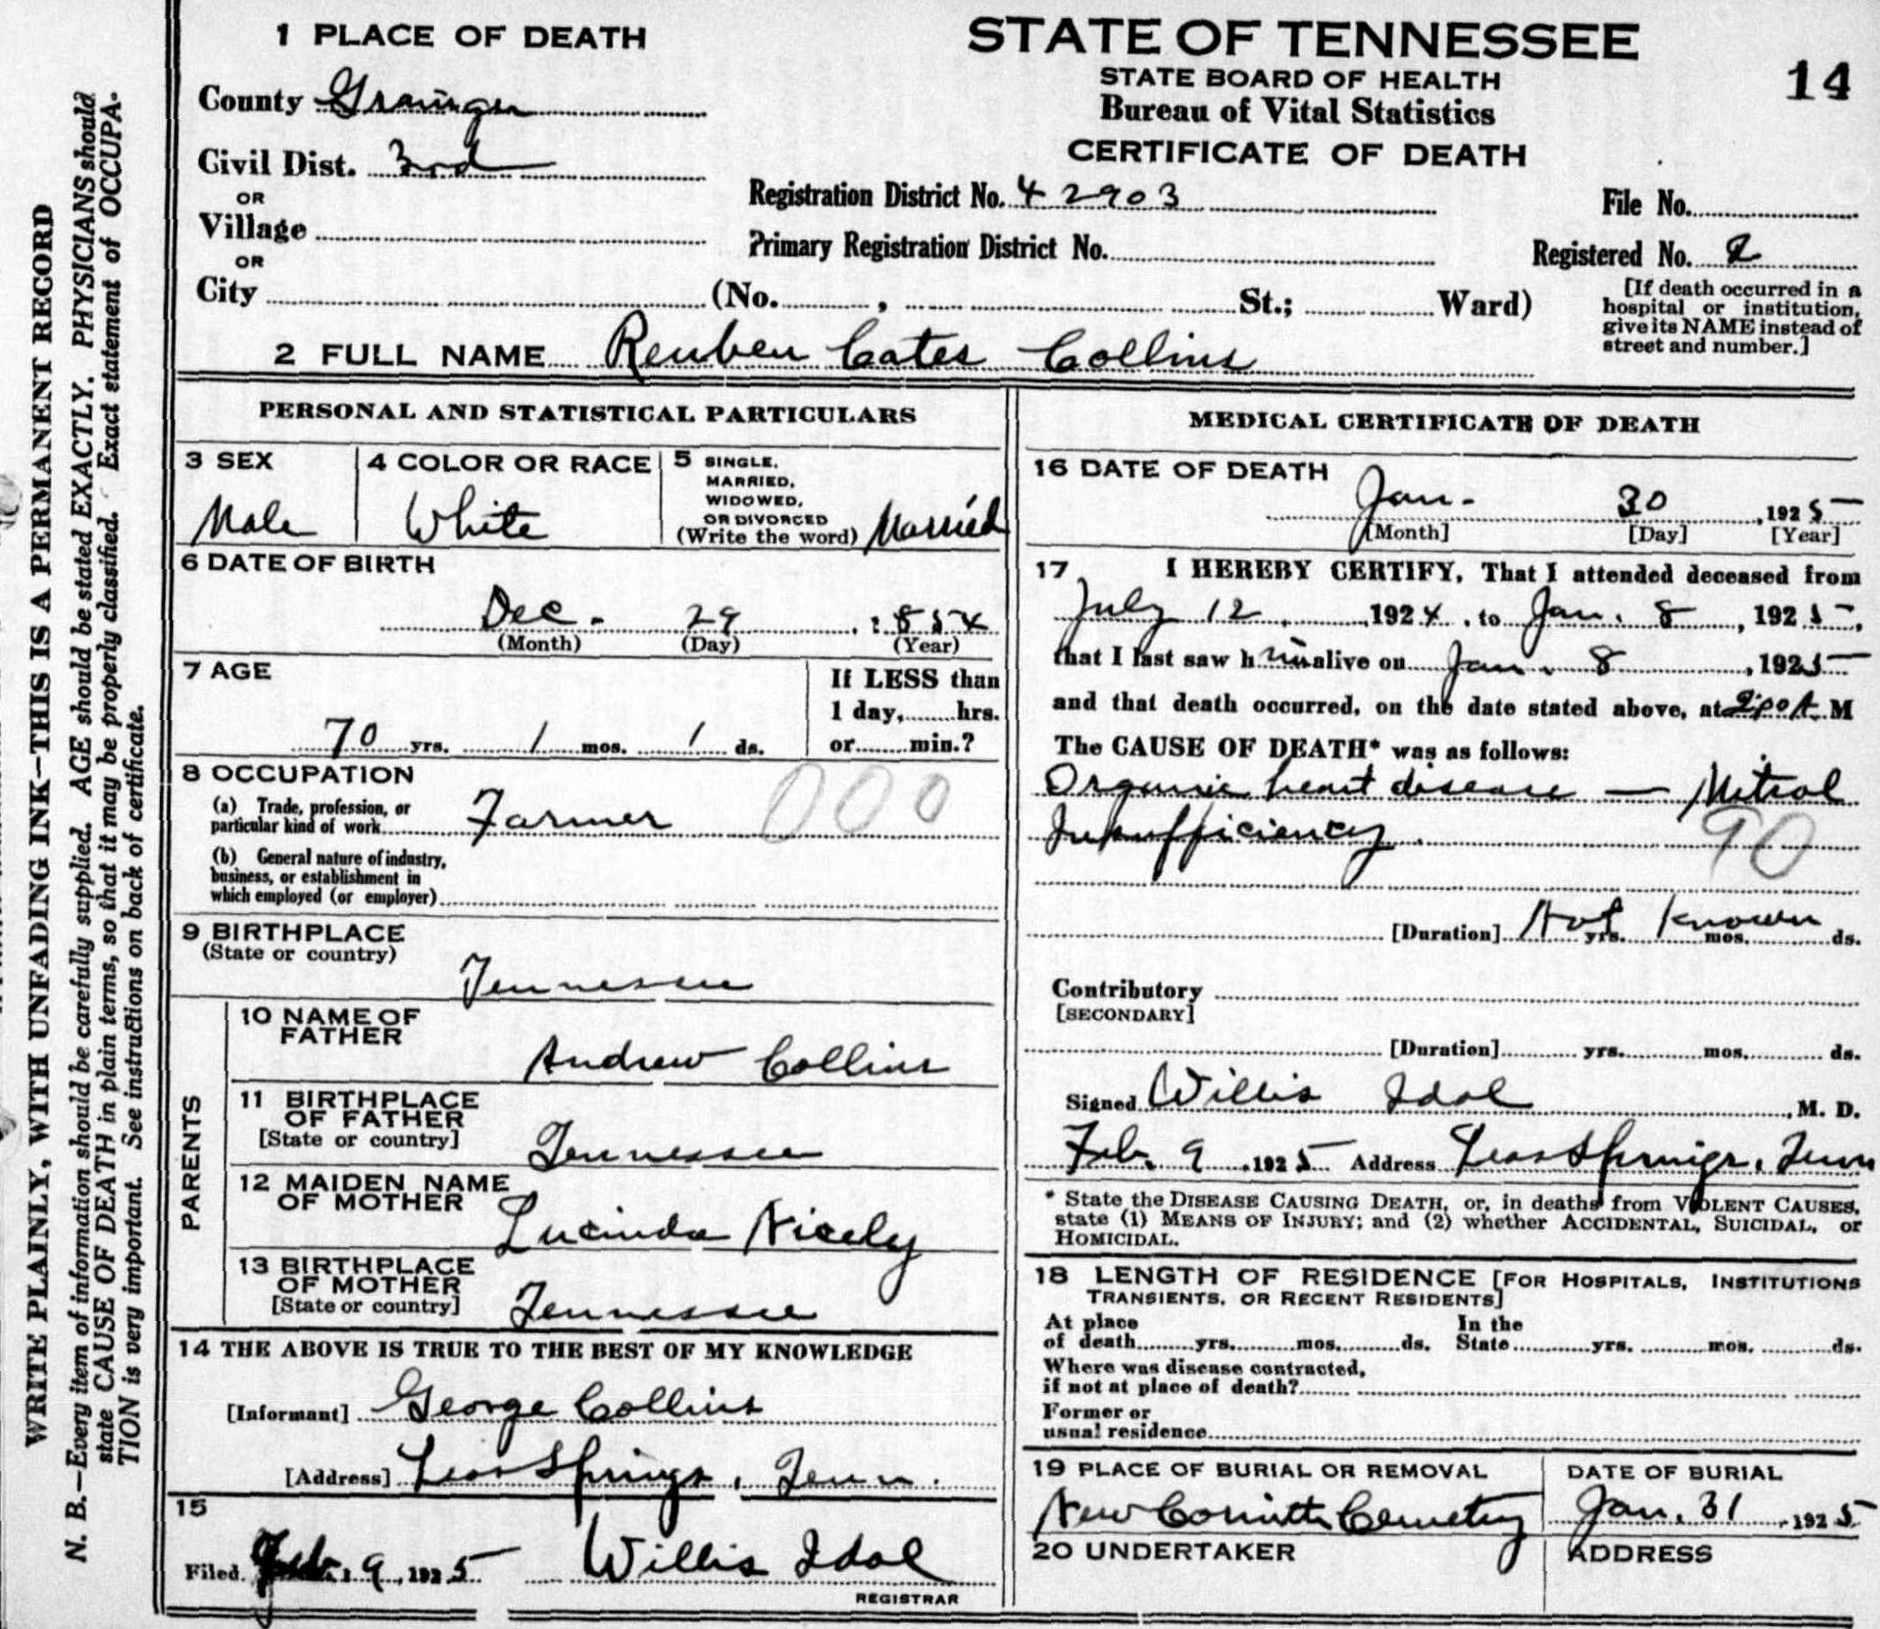 WRITE PLAINLY, WITH UNFADING INK—THIS IS A PERMANENT RECORD
N. B.—Every item of information should be carefully supplied. AGE should be stated EXACTLY. PHYSICIANS should
state CAUSE OF DEATH in plain terms, so that it may be properly classified. Exact statement of OCCUPA-
TION is very important. See instructions on back of certificate.
1 PLACE OF DEATH
County Grainger
Civil Dist. 3rd
OR
Village
OR
City (No. , St.; Ward)
STATE OF TENNESSEE
STATE BOARD OF HEALTH
Bureau of Vital Statistics
CERTIFICATE OF DEATH
14
Registration District No. 42903
File No.
Primary Registration District No.
Registered No. 2
[If death occurred in a
hospital or institution,
give its NAME instead of
street and number.]
2 FULL NAME Reuben Cates Collins
PERSONAL AND STATISTICAL PARTICULARS
3 SEX
Male
4 COLOR OR RACE
White
5 SINGLE,
MARRIED,
WIDOWED,
OR DIVORCED
(Write the word) Married
6 DATE OF BIRTH
Dec. 29, 1854
(Month) (Day) (Year)
7 AGE
70 yrs. 1 mos. 1 ds.
If LESS than
1 day, hrs.
or min.?
8 OCCUPATION
(a) Trade, profession, or
particular kind of work Farmer
000
(b) General nature of industry,
business, or establishment in
which employed (or employer)
9 BIRTHPLACE
(State or country)
Tennessee
PARENTS
10 NAME OF
FATHER
Andrew Collins
11 BIRTHPLACE
OF FATHER
[State or country] Tennessee
12 MAIDEN NAME
OF MOTHER
Lucinda Nicely
13 BIRTHPLACE
OF MOTHER
[State or country] Tennessee
14 THE ABOVE IS TRUE TO THE BEST OF MY KNOWLEDGE
[Informant] George Collins
[Address] Leas Springs, Tenn.
15
Filed Feb. 9, 1925 Willis Idol
REGISTRAR
MEDICAL CERTIFICATE OF DEATH
16 DATE OF DEATH
Jan. 30, 1925
[Month] [Day] [Year]
17 I HEREBY CERTIFY, That I attended deceased from
July 12, 1924, to Jan. 8, 1925,
that I last saw him alive on Jan. 8, 1925
and that death occurred, on the date stated above, at 2:00 A. M
The CAUSE OF DEATH* was as follows:
Organic heart disease — Mitral
Insufficiency.
90
[Duration] Not yrs. Known mos. ds.
Contributory
[SECONDARY]
[Duration] yrs. mos. ds.
Signed Willis Idol, M. D.
Feb. 9, 1925 Address Leas Springs, Tenn
* State the DISEASE CAUSING DEATH, or, in deaths from VIOLENT CAUSES,
state (1) MEANS OF INJURY; and (2) whether ACCIDENTAL, SUICIDAL, or
HOMICIDAL.
18 LENGTH OF RESIDENCE [FOR HOSPITALS, INSTITUTIONS
TRANSIENTS, OR RECENT RESIDENTS]
At place
of death yrs. mos. ds.
In the
State yrs. mos. ds.
Where was disease contracted,
if not at place of death?
Former or
usual residence
19 PLACE OF BURIAL OR REMOVAL
New Corinth Cemetery
DATE OF BURIAL
Jan. 31, 1925
20 UNDERTAKER
ADDRESS